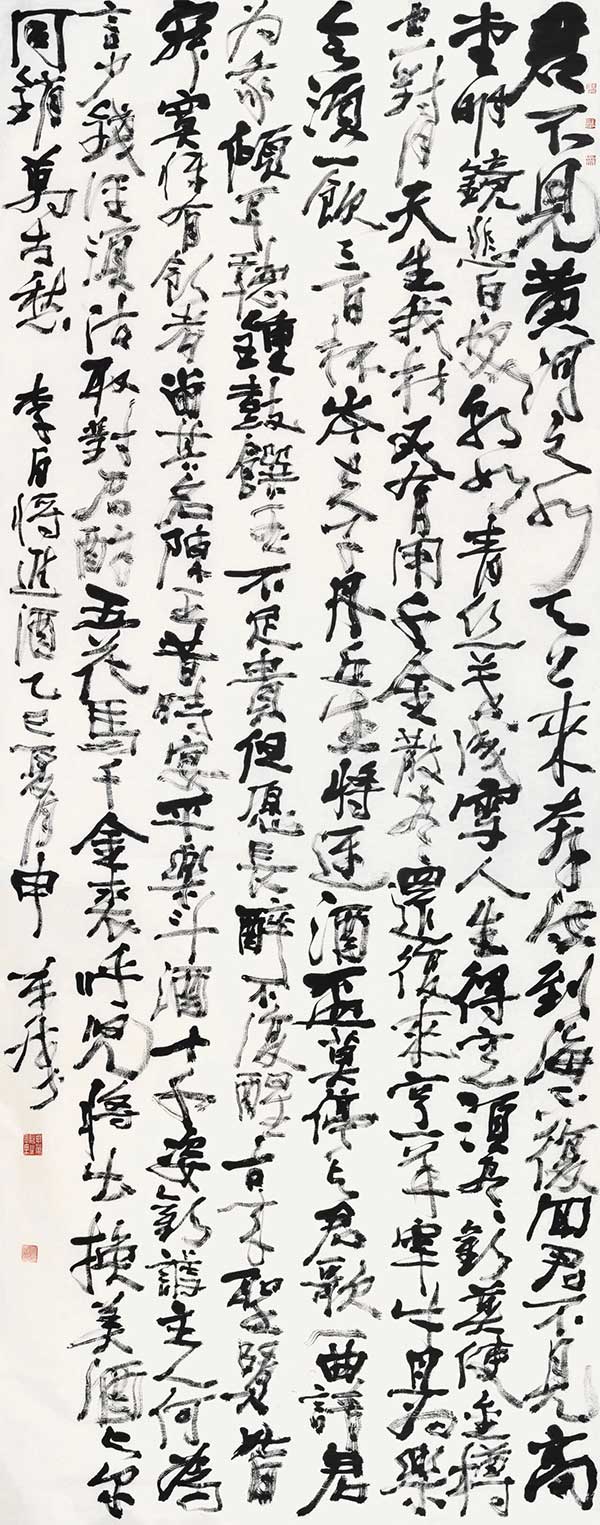 君不見黃河之水天上來奔流到海不復回君不見高
堂明鏡悲白髮朝如青絲暮成雪人生得意須盡歡莫使金樽
空對月天生我材必有用千金散盡還復來烹羊宰牛且為樂
會須一飲三百杯岑夫子丹丘生將進酒盃莫停与君歌一曲請君
为我傾耳聽鐘鼓饌玉不足貴但愿長醉不復醒古来聖賢皆
寂寞惟有飲者留其名陳王昔時宴平樂斗酒十千恣歡謔主人何為
言少錢徑須沽取對君酌五花馬千金裘呼兒將出換美酒与尔
同銷萬古愁 李白將進酒乙巳夏月申